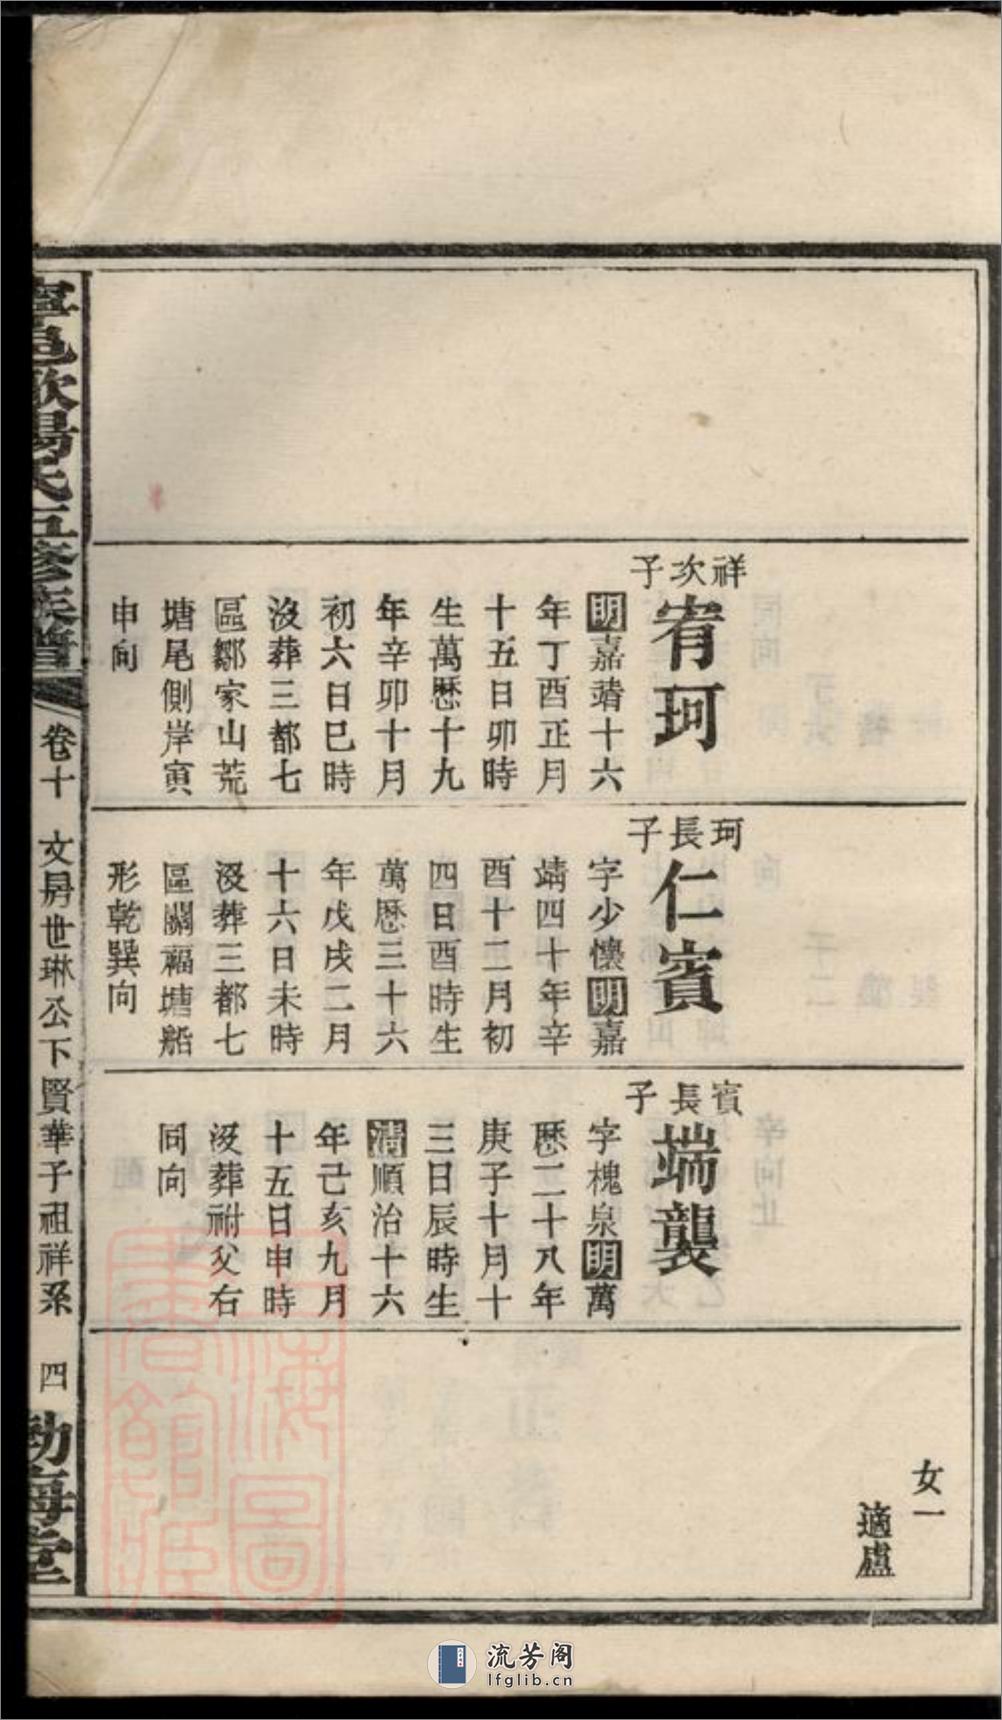 祥次子
宥珂
明嘉靖十六
年丁酉正月
十五日卯時
生萬歷十九
年辛卯十月
初六日巳時
沒葬三都七
區鄒家山荒
塘尾側岸寅
申向
珂長子
仁賓
字少懷明嘉
靖四十年辛
酉十二月初
四日酉時生
萬歷三十六
年戊戌二月
十六日未時
沒葬三都七
區關福塘船
形乾巽向
賓長子
端襲
字槐泉明萬
歷二十八年
庚子十月十
三日辰時生
清順治十六
年己亥九月
十五日申時
沒葬祔父右
同向
女一
適盧
寧邑歐陽氏五修族譜
卷十
文房世琳公下賢華子祖祥系
四
上海圖書館藏
流芳阁
lfglib.cn